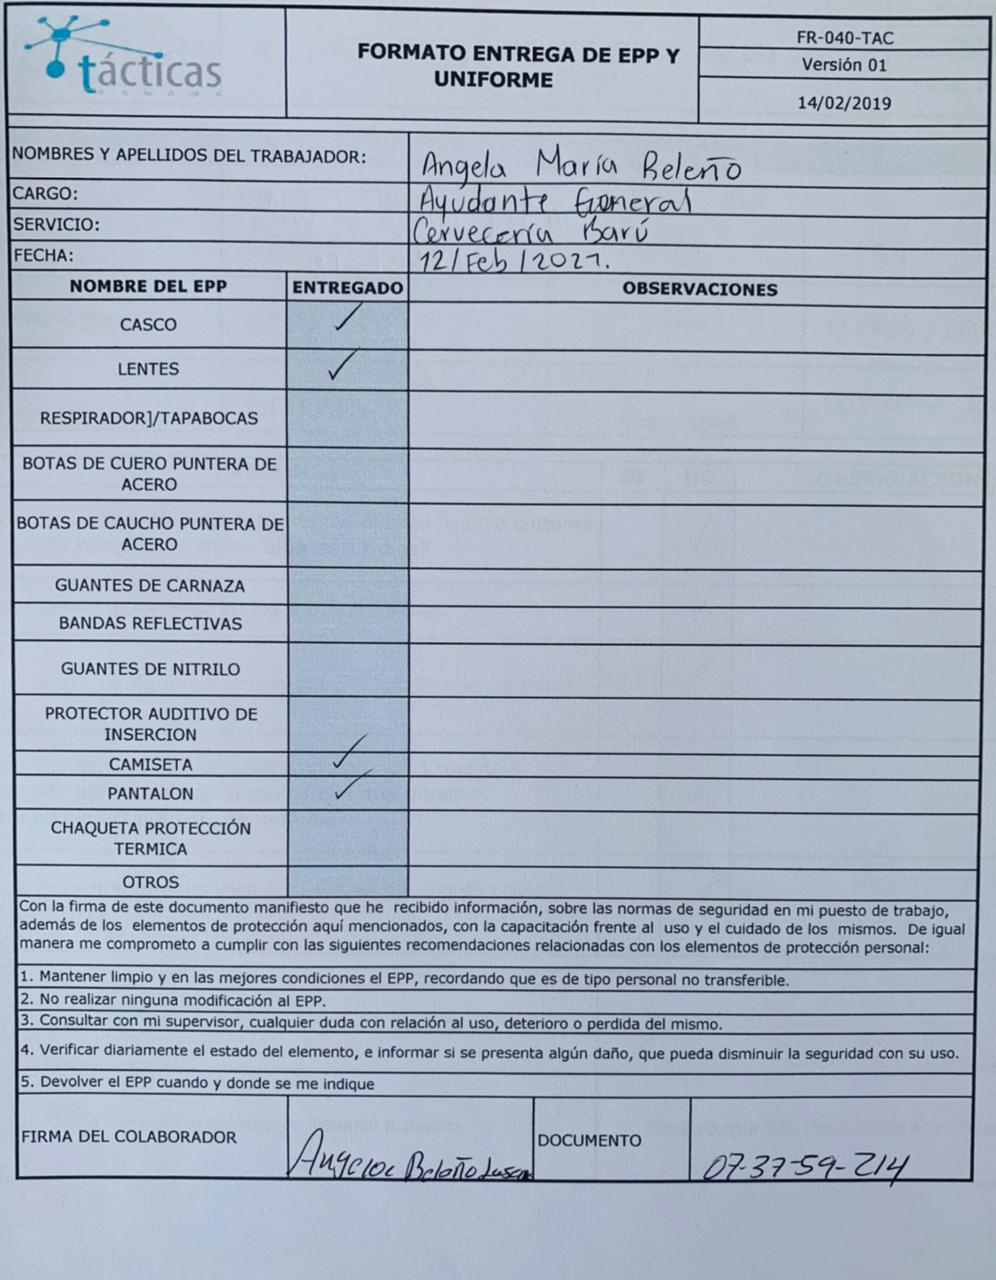 tácticas
PANAMÁ
FORMATO ENTREGA DE EPP Y
UNIFORME
FR-040-TAC
Versión 01
14/02/2019
NOMBRES Y APELLIDOS DEL TRABAJADOR: Angela María Beleño
CARGO: Ayudante General
SERVICIO: Cervecería Barú
FECHA: 12/Feb/2021.
NOMBRE DEL EPP ENTREGADO OBSERVACIONES
CASCO ✓
LENTES ✓
RESPIRADOR]/TAPABOCAS
BOTAS DE CUERO PUNTERA DE
ACERO
BOTAS DE CAUCHO PUNTERA DE
ACERO
GUANTES DE CARNAZA
BANDAS REFLECTIVAS
GUANTES DE NITRILO
PROTECTOR AUDITIVO DE
INSERCION
CAMISETA ✓
PANTALON ✓
CHAQUETA PROTECCIÓN
TERMICA
OTROS
Con la firma de este documento manifiesto que he recibido información, sobre las normas de seguridad en mi puesto de trabajo,
además de los elementos de protección aquí mencionados, con la capacitación frente al uso y el cuidado de los mismos. De igual
manera me comprometo a cumplir con las siguientes recomendaciones relacionadas con los elementos de protección personal:
1. Mantener limpio y en las mejores condiciones el EPP, recordando que es de tipo personal no transferible.
2. No realizar ninguna modificación al EPP.
3. Consultar con mi supervisor, cualquier duda con relación al uso, deterioro o perdida del mismo.
4. Verificar diariamente el estado del elemento, e informar si se presenta algún daño, que pueda disminuir la seguridad con su uso.
5. Devolver el EPP cuando y donde se me indique
FIRMA DEL COLABORADOR Angela Beleño DOCUMENTO 07-37-59-214